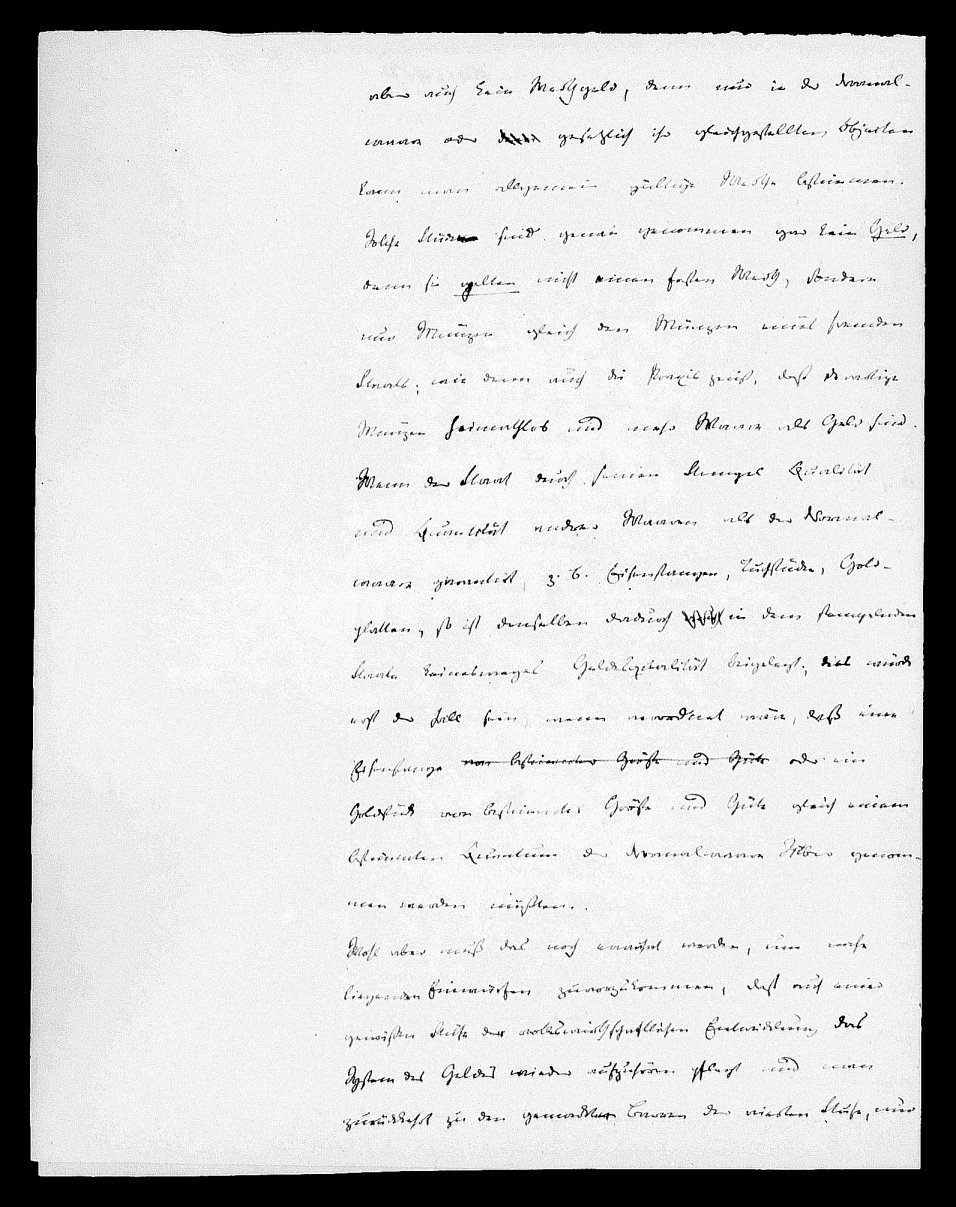 aber auch kein Werthgeld, denn nur in der Normal-
waare oder gesetzlich ihr gleichgestellten Objecten
kann man allgemein gültige Werthe bestimmen.
Solche Stücke sind genau genommen gar kein Geld,
denn sie gelten nicht einen festen Werth, sondern
nur Münzen gleich den Münzen eines fremden
Staats; wie denn auch die Praxis zeigt, daß derartige
Münzen heimathlos und mehr Waare als Geld sind.
Wenn der Staat durch seinen Stempel Qualität
und Quantität anderer Waaren als der Normal-
waare garantirt, z. B. Eisenstangen, Tuchstücke, Gold-
platten, so ist denselben dadurch in dem stempelnden
Staate keineswegs Geldesqualität beigelegt; dies würde
erst der Fall sein, wenn verordnet wäre, daß eine
Eisenstange von bestimmter Größe und Güte oder ein
Goldstück von bestimmter Größe und Güte gleich einem
bestimmten Quantum der Normalwaare Silber genom-
men werden müßten.
Wohl aber muß das noch erwähnt werden, um nahe
liegenden Einwürfen zuvorzukommen, daß auf einer
gewissen Stufe der volkswirthschaftlichen Entwicklung das
System des Geldes wieder aufzuhören pflegt und man
zurückkehrt zu den gemarkten Barren der vierten Stufe, nur